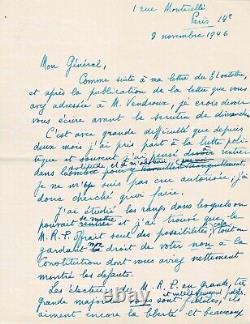 1 rue Monticelli
Paris 14e
8 novembre 1946
Mon Général,
Comme suite à ma lettre du 31 octobre
et après la publication de la lettre que vous
avez adressée à M. Vendroux, je crois devoir
vous écrire avant le scrutin de dimanche
C'est avec grande difficulté que depuis
deux mois j'ai pris part à la lutte poli-
tique et souvent j'ai pensé
dans l'ombre pour
Je ne m'y suis pas cru autorisé, j'ai
donc cherché quoi faire.
J'ai étudié les rangs dans lesquels on
pouvait et j'ai trouvé que le
M.R.P. offrait seul des possibilités
droit de votre non à la
Constitution dont vous avez nettement
montré les défauts.
Les électeurs M.R.P. en grande, très
grande majorité sont fidèles,
aiment encore la liberté et beaucoup